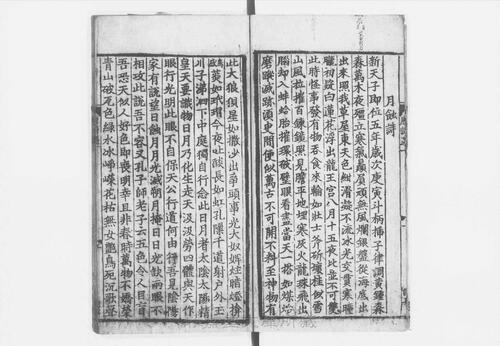 月蝕詩
新天子即位五年歲次庚寅斗柄插子律調黃鐘森
森萬木夜殭立寒氣贔屭頑無風爛銀盤從海底出
出來照我草屋東天色紺滑凝不流冰光交貫寒曈
曨初疑白蓮花浮出龍王宮八月十五夜比並不可雙
此時怪事發有物吞食來輪如壯士斧斫壞桂似雪
山風拉摧百鍊鏡照見膽平地埋寒灰火龍珠飛出
腦却入蚌蛤胎摧環破璧眼看盡當天一搭如煤炱
磨蹤滅跡須臾間便似萬古不可開不料至神物有
此大狼狽星如撒沙出爭頭事光大奴婢炷暗燈揜
菼如玳瑁今夜吐燄長如虹孔隙千道射戶外玉
川子涕泗下中庭獨自行念此日月者太陰太陽精
皇天要識物日月乃化生走天汲汲勞四體與天作
眼行光明此眼不自保天公行道何由行吾見陰陽
家有說望日蝕月月光滅朔月掩日日光缺兩眼不
相攻此說吾不容又孔子師老子云五色令人目盲
吾恐天似人好色即喪明幸且非春時萬物不嬌榮
青山破瓦色綠水冰崢嶸花枯無女艷鳥死沉歌聲